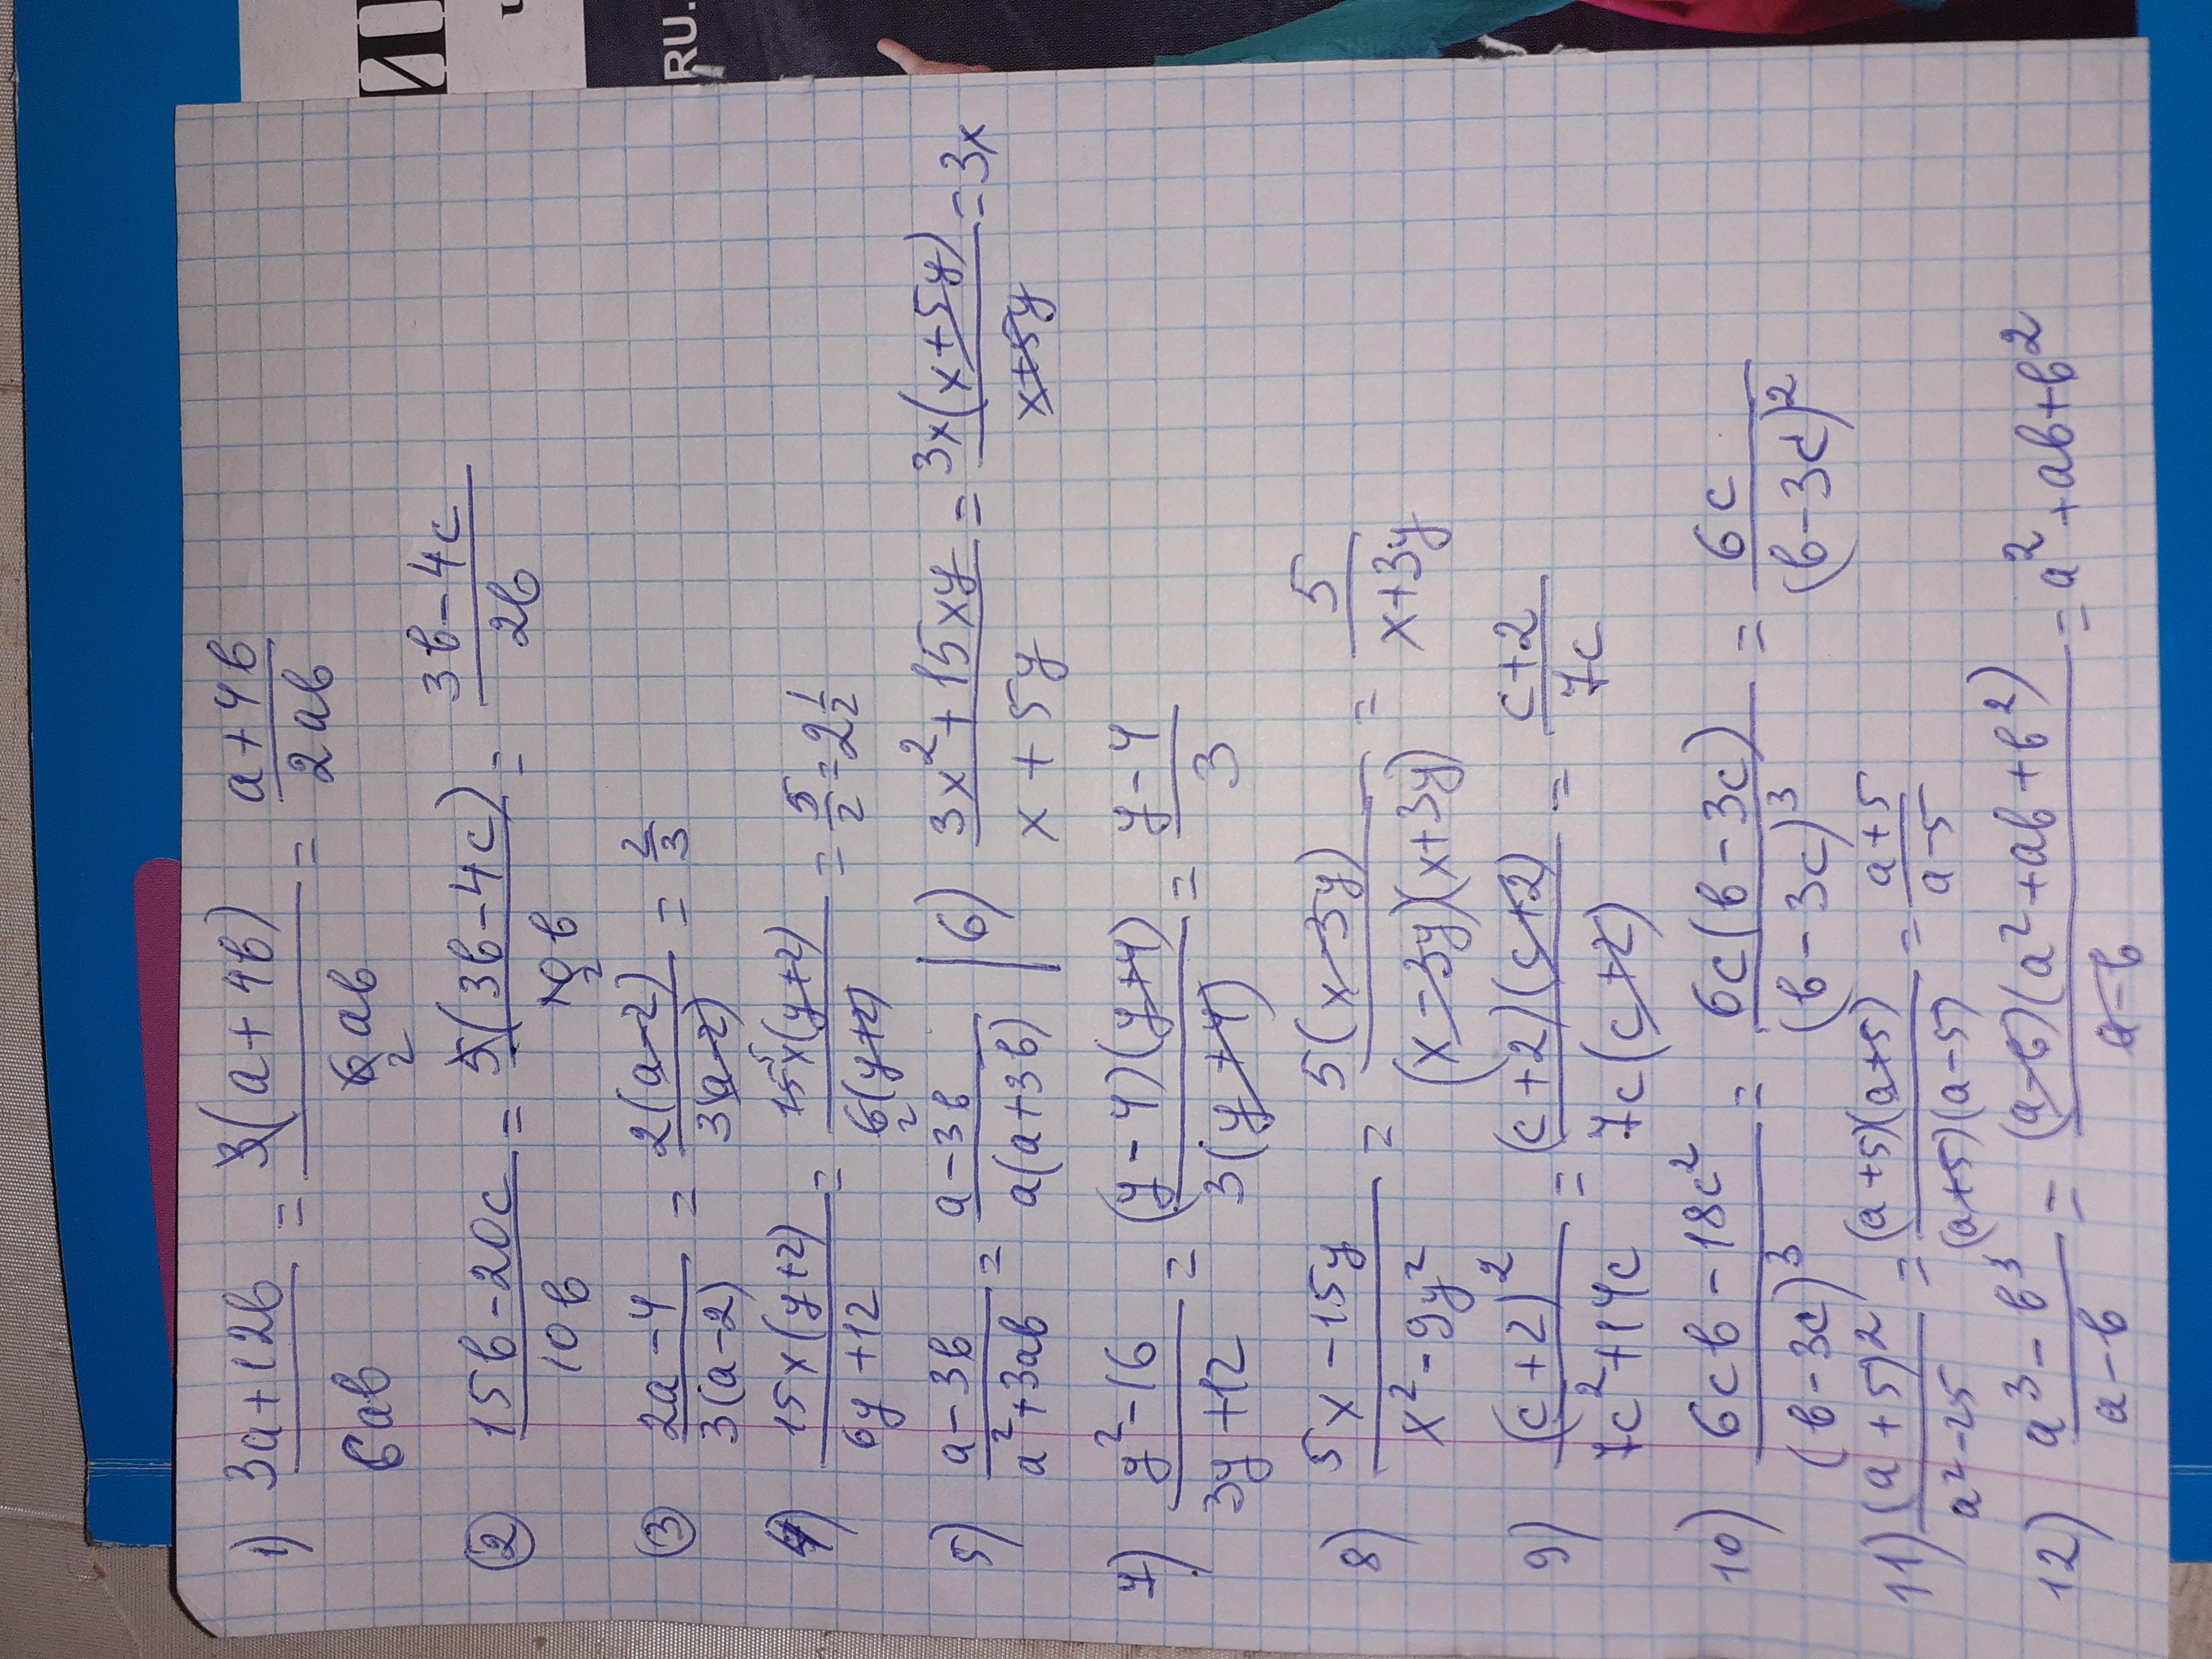 ИП
RU.
1) (3a+12b)/(6ab) = (3(a+4b))/(6ab) 2 = (a+4b)/(2ab)
② (15b-20c)/(10b) = (5(3b-4c))/(10b) 2 = (3b-4c)/(2b)
③ (2a-4)/(3(a-2)) = (2(a-2))/(3(a-2)) = 2/3
4) (15x(y+2))/(6y+12) = (15x(y+2))/(6(y+2)) 5 2 = 5/2 = 2 1/2
5) (a-3b)/(a²+3ab) = (a-3b)/(a(a+3b)) | 6) (3x²+15xy)/(x+5y) = (3x(x+5y))/(x+5y) = 3x
7) (y²-16)/(3y+12) = ((y-4)(y+4))/(3(y+4)) = (y-4)/3
8) (5x-15y)/(x²-9y²) = (5(x-3y))/((x-3y)(x+3y)) = 5/(x+3y)
9) (c+2)²/(7c²+14c) = ((c+2)(c+2))/(7c(c+2)) = (c+2)/(7c)
10) (6cb-18c²)/(b-3c)³ = (6c(b-3c))/(b-3c)³ = 6c/(b-3c)²
11) (a+5)²/(a²-25) = ((a+5)(a+5))/((a+5)(a-5)) = (a+5)/(a-5)
12) (a³-b³)/(a-b) = ((a-b)(a²+ab+b²))/(a-b) = a²+ab+b²